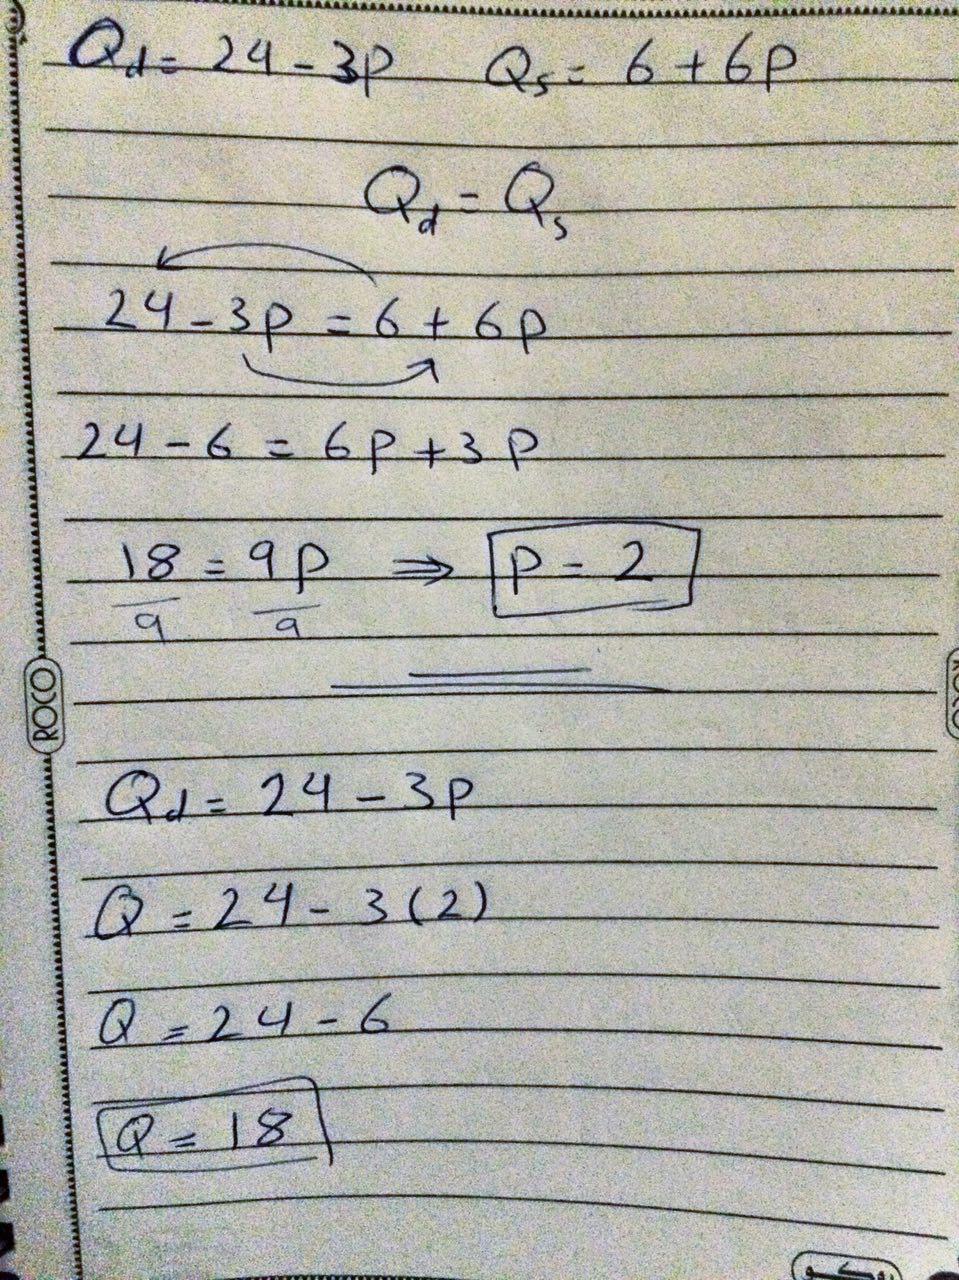 Qd = 24 - 3P    Qs = 6 + 6P
Qd = Qs
24 - 3P = 6 + 6P
24 - 6 = 6P + 3P
18/9 = 9P/9 ⇒ P = 2
ROCO
Qd = 24 - 3P
Q = 24 - 3(2)
Q = 24 - 6
Q = 18